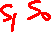 S₁ S₀